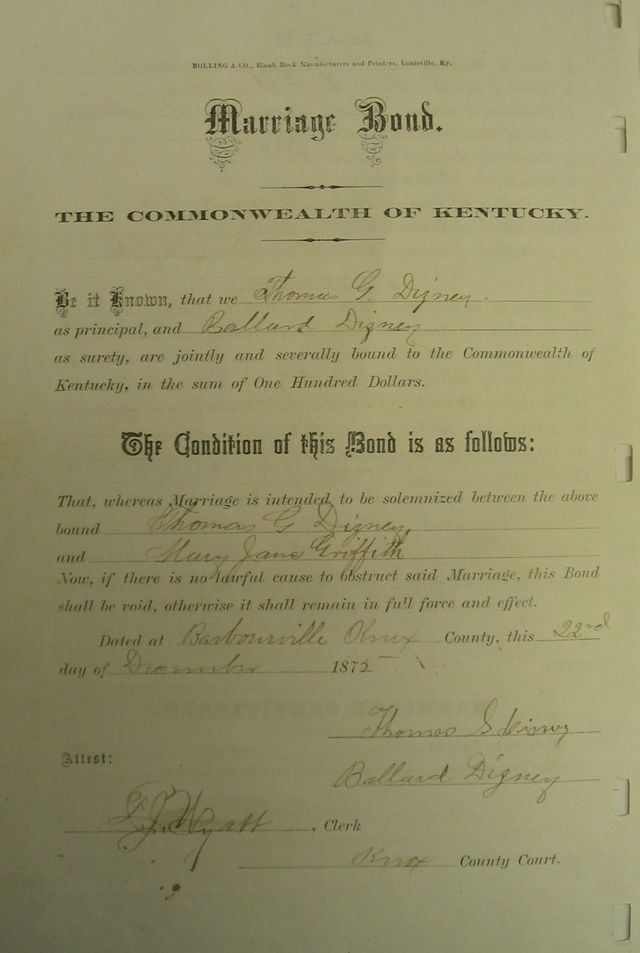 BOLLING & CO., Blank Book Manufacturers and Printers, Louisville, Ky.
Marriage Bond.
THE COMMONWEALTH OF KENTUCKY.
Be it Known, that we Thomas G Digney.
as principal, and Ballard Digney
as surety, are jointly and severally bound to the Commonwealth of
Kentucky, in the sum of One Hundred Dollars.
The Condition of this Bond is as follows:
That, whereas Marriage is intended to be solemnized between the above
bound Thomas G Digney,
and Mary Jane Griffith
Now, if there is no lawful cause to obstruct said Marriage, this Bond
shall be void, otherwise it shall remain in full force and effect.
Dated at Barbourville Knox County, this 22nd
day of December 1875
Thomas G
Ballard Digney
Attest:
Wyatt, Clerk
Knox County Court.